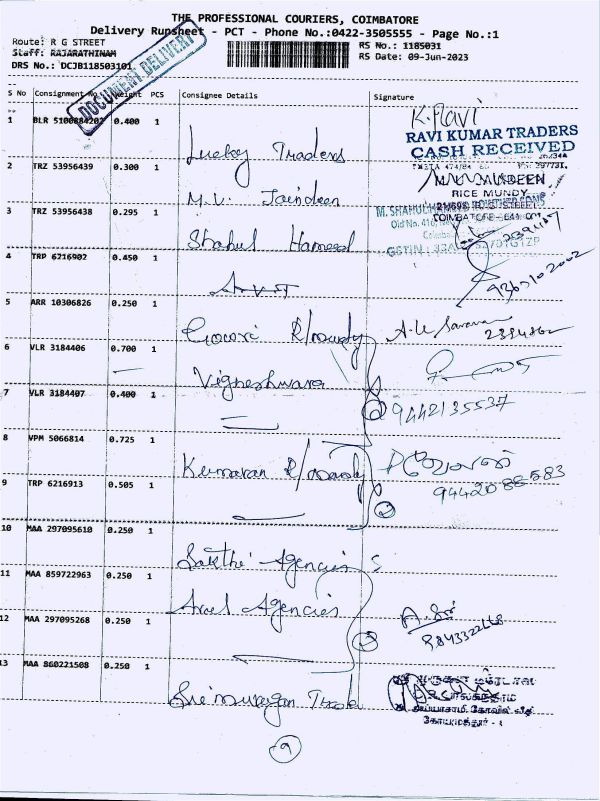 THE PROFESSIONAL COURIERS, COIMBATORE
Delivery Runsheet - PCT - Phone No.:0422-3505555 - Page No.:1
Route: R G STREET
RS No.: 1185031
Staff: RAJARATHINAM
RS Date: 09-Jun-2023
DRS No.: DCJB118503101
DOCUMENT DELIVERY
S No Consignment No. Weight PCS Consignee Details Signature
K. Ravi
RAVI KUMAR TRADERS
CASH RECEIVED
1 BLR 5100884202 0.400 1
Luckey Traders
2 TRZ 53956439 0.300 1
M.V. Jaindeen
RICE MUNDY
3 TRZ 53956438 0.295 1
Shahul Hameed
4 TRP 6216902 0.450 1
9363102002
5 ARR 10306826 0.250 1
Gowri R/mundy
6 VLR 3184406 0.700 1
Vigneshwara
7 VLR 3184407 0.400 1
2 9442135537
8 VPM 5066814 0.725 1
Kumaran R/mundy
9442088583
9 TRP 6216913 0.505 1
2
10 MAA 297095610 0.250 1
Sakthi Agencies
11 MAA 859722963 0.250 1
Arul Agencies
9843322668
12 MAA 297095268 0.250 1
13 MAA 860221508 0.250 1
Sri murugan
கோயமுத்தூர் - 1
9